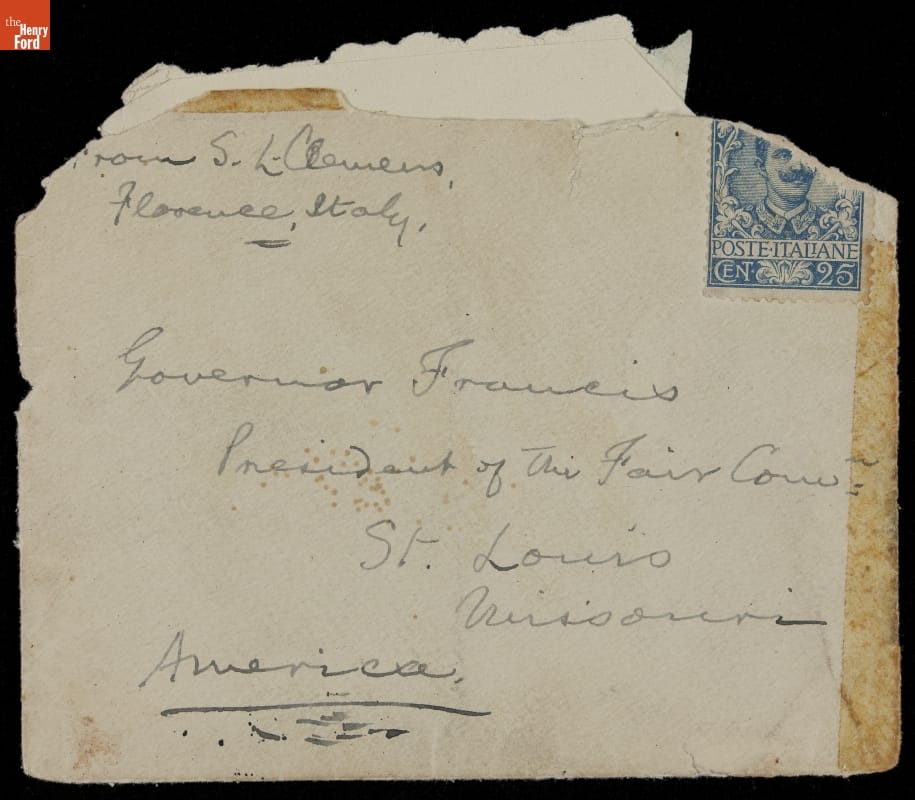 the
Henry
Ford
From S. L. Clemens,
Florence, Italy.
POSTE·ITALIANE
CEN. 25
Governor Francis
President of the Fair Comn
St. Louis
Missouri
America.